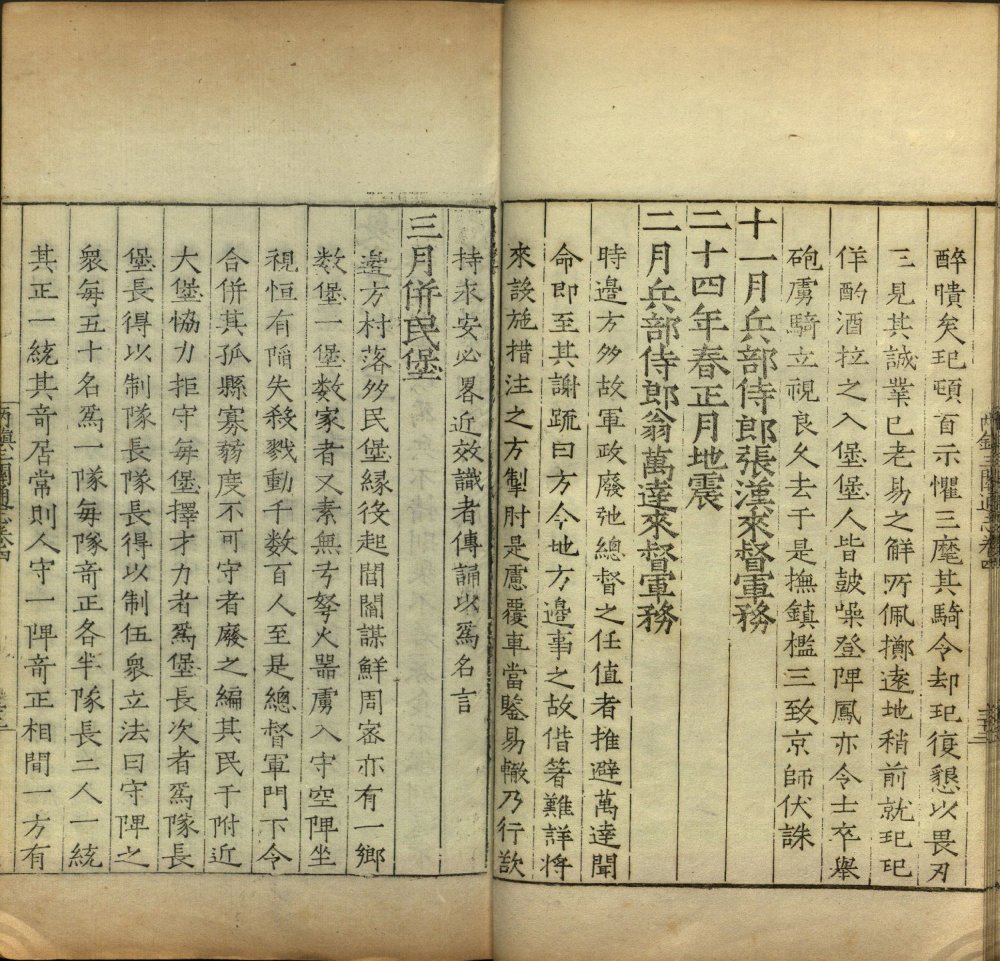 醉瞶矣玘頓首示懼三麾其騎令却玘復懇以畏刃
三見其誠業已老易之觧所佩擲逺地稍前就玘玘
佯酌酒拉之入堡堡人皆鼓噪登陴鳳亦令士卒舉
砲虜騎立視良久去于是撫鎮檻三致京師伏誅
十一月兵部侍郎張漢來督軍務
二十四年春正月地震
二月兵部侍郎翁萬逹來督軍務
時邊方多故軍政廢弛總督之任值者推避萬逹聞
命即至其謝疏曰方今地方邊事之故借箸難詳將
來設施措注之方掣肘是慮覆車當鑒易轍乃行欲
持永安必畧近效識者傳誦以爲名言
三月併民堡
邊方村落多民堡縁後起閭閻謀鮮周密亦有一鄉
数堡一堡数家者又素無弓弩火噐虜入守空陴坐
視恒有陥失殺戮動千数百人至是總督軍門下令
合併其孤縣寡蒻度不可守者廢之編其民于附近
大堡恊力拒守每堡擇才力者爲堡長次者爲隊長
堡長得以制隊長隊長得以制伍衆立法曰守陴之
衆每五十名爲一隊每隊竒正各半隊長二人一統
其正一統其竒居常則人守一陴竒正相間一方有
兩鎮三關通志卷四